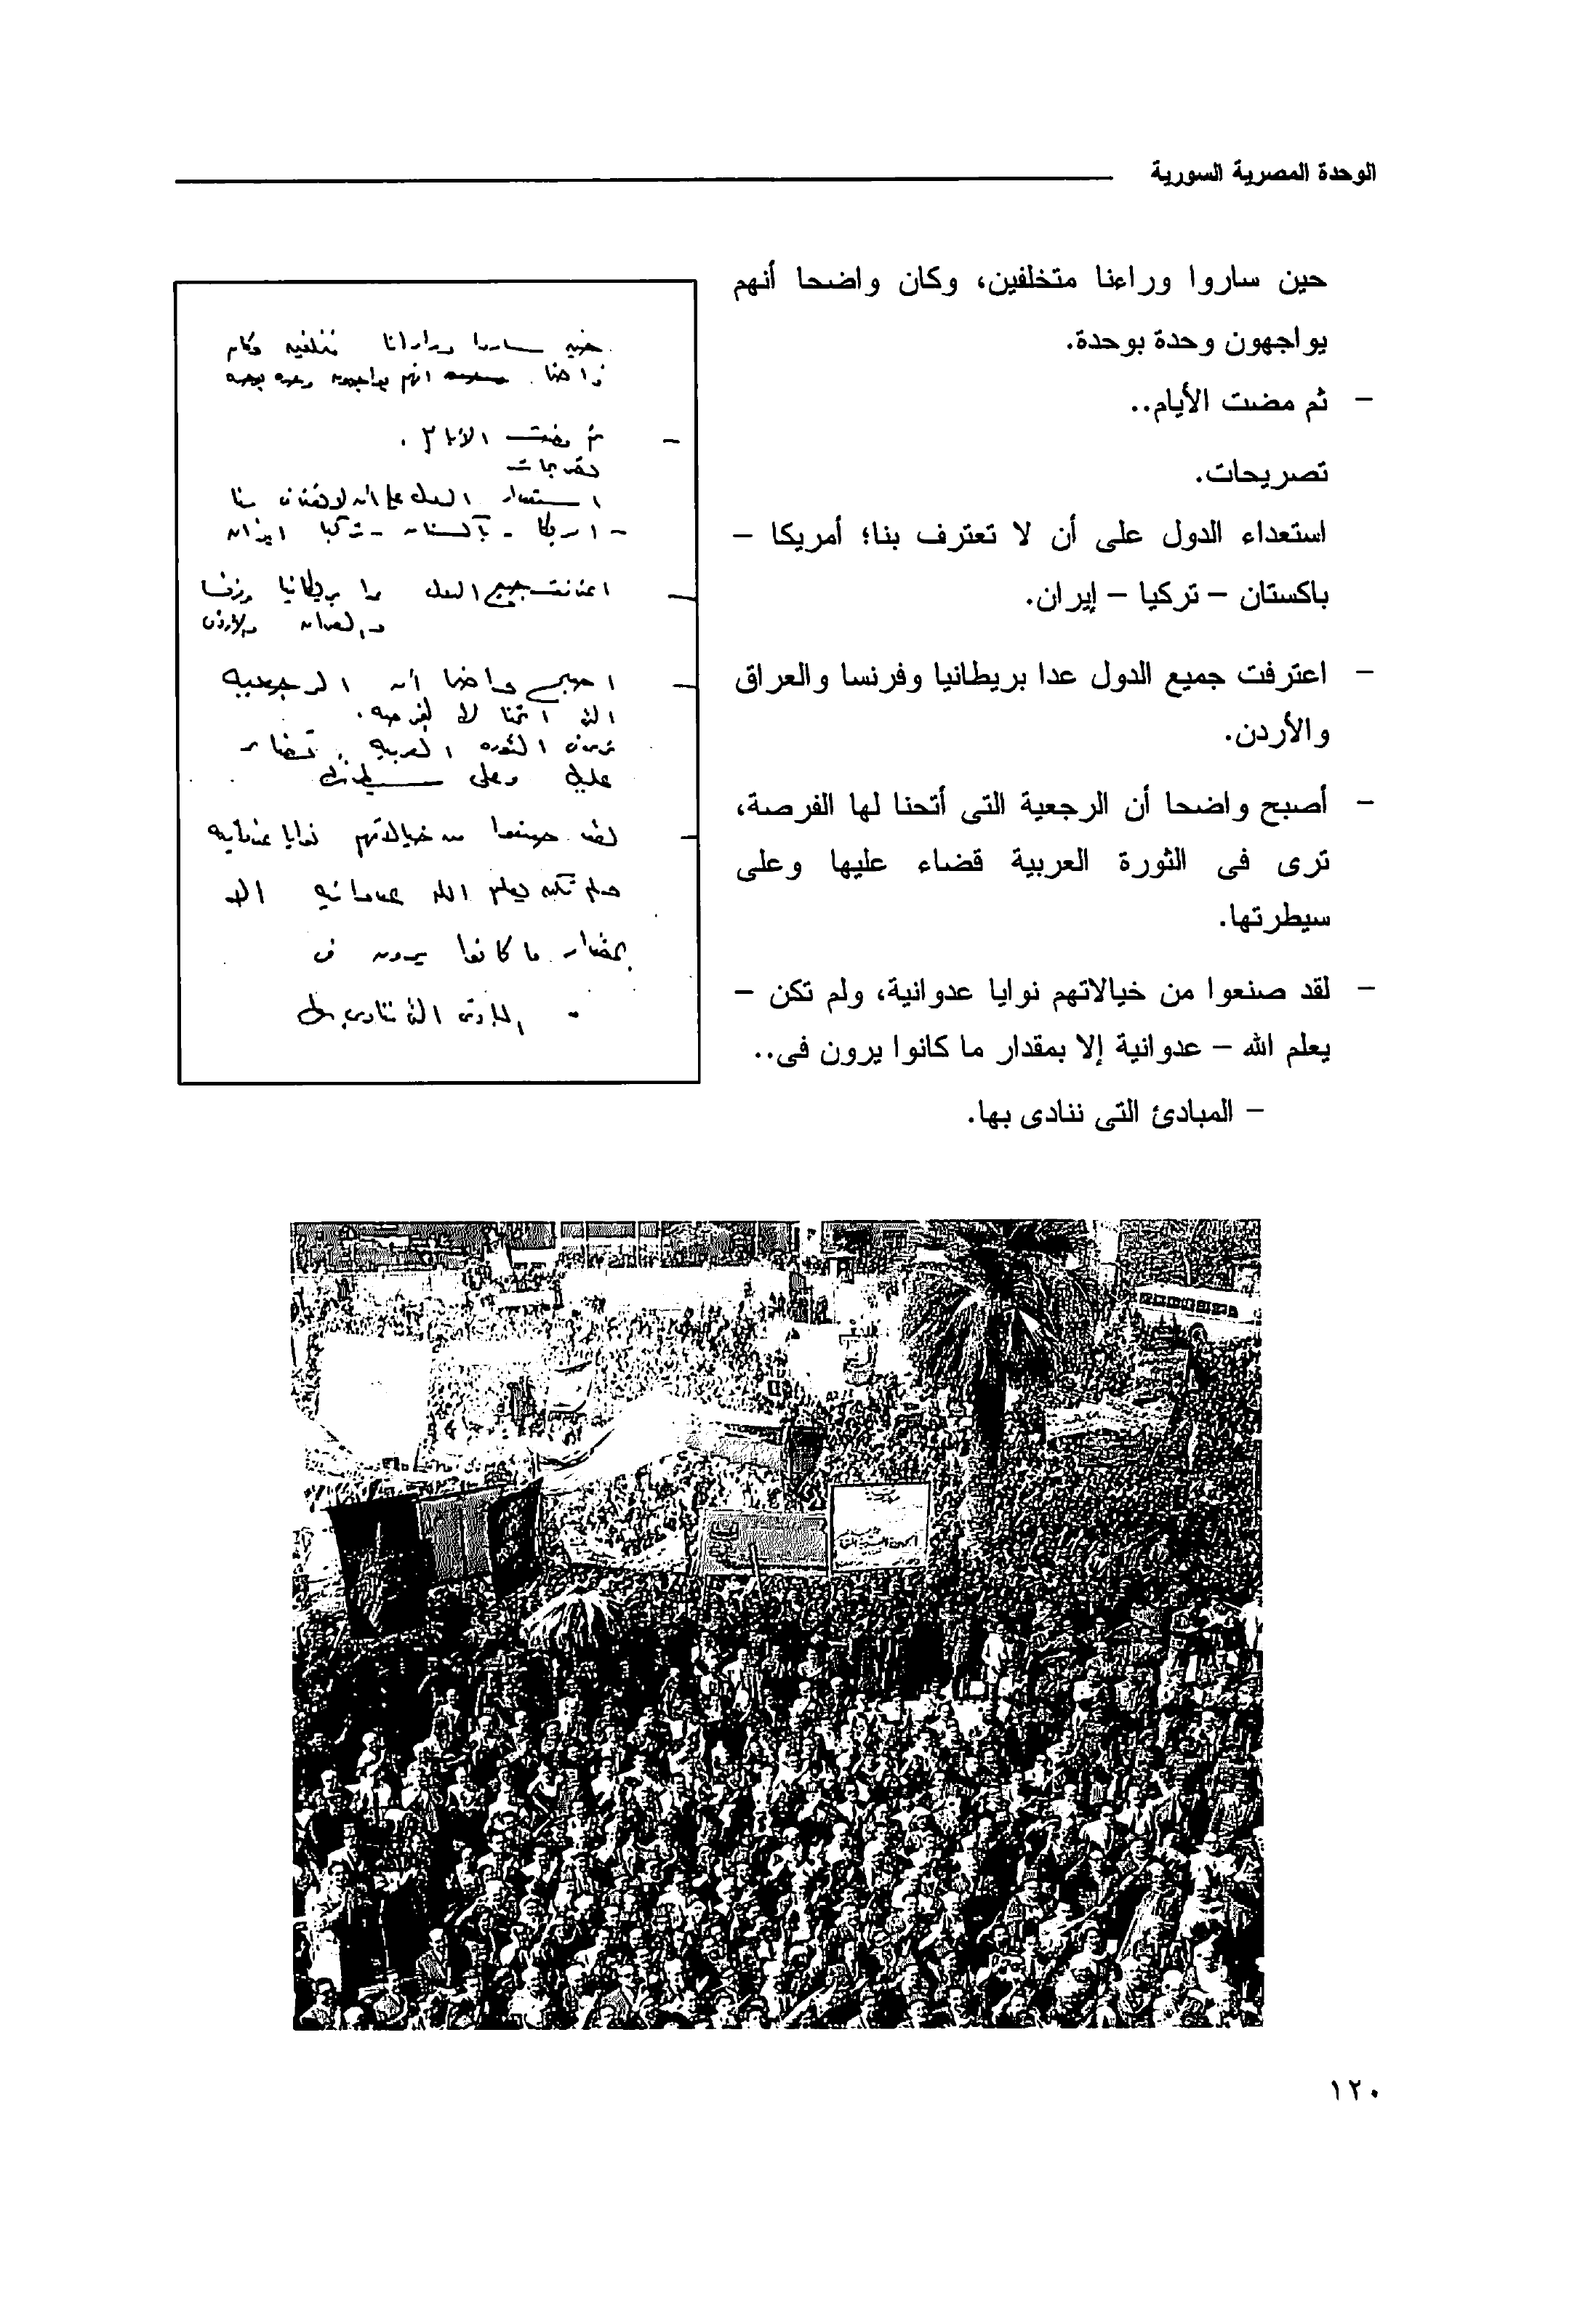 الوحدة المصرية السورية
حين ساروا وراءنا متخلفين، وكان واضحا أنهم
يواجهون وحدة بوحدة.
- ثم مضت الأيام..
تصريحات.
استعداء الدول على أن لا تعترف بنا؛ أمريكا -
باكستان - تركيا - إيران.
- اعترفت جميع الدول عدا بريطانيا وفرنسا والعراق
والأردن.
- أصبح واضحا أن الرجعية التى أتحنا لها الفرصة،
ترى فى الثورة العربية قضاء عليها وعلى
سيطرتها.
- لقد صنعوا من خيالاتهم نوايا عدوانية، ولم تكن -
يعلم الله - عدوانية إلا بمقدار ما كانوا يرون فى..
- المبادئ التى ننادى بها.
حين ساروا وراءنا متخلفين وكان
واضحا انهم يواجهون وحده بوحده
- ثم مضت الايام .
تصريحات
استعداء الدول على ان لا تعترف بنا
- امريكا - باكستان - تركيا ايران
- اعترفت جميع الدول عدا بريطانيا وفرنسا
والعراق والاردن
- اصبح واضحا ان الرجعيه
التى اتحنا لها الفرصه .
ترى فى الثوره العربيه قضاء
عليها وعلى سيطرتها
- لقد صنعوا من خيالاتهم نوايا عدوانيه
ولم تكن يعلم الله عدوانيه الا
بمقدار ما كانوا يرون فى
- المبادئ التى ننادى بها
١٢٠